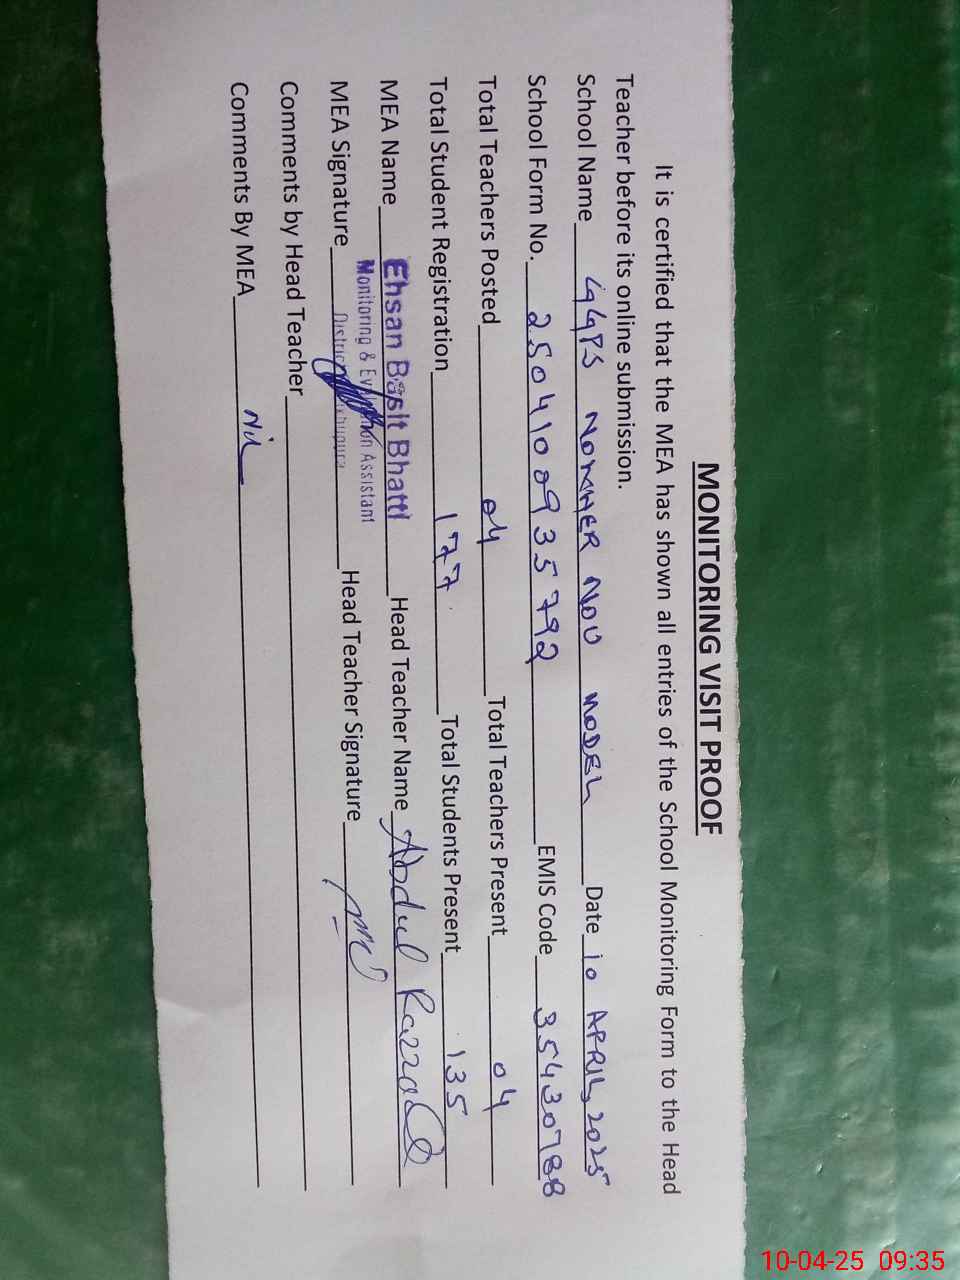 MONITORING VISIT PROOF
It is certified that the MEA has shown all entries of the School Monitoring Form to the Head
Teacher before its online submission.
School Name GGPS NOMHER NOU MODEL Date 10 APRIL, 2025
School Form No. 2504100935792 EMIS Code 35430788
Total Teachers Posted 04 Total Teachers Present 04
Total Student Registration 177 Total Students Present 135
MEA Name Ehsan Basit Bhatti Head Teacher Name Abdul Razzaq
Monitoring & Evaluation Assistant
MEA Signature District Head Teacher Signature
Comments by Head Teacher
Comments By MEA Nil
10-04-25 09:35